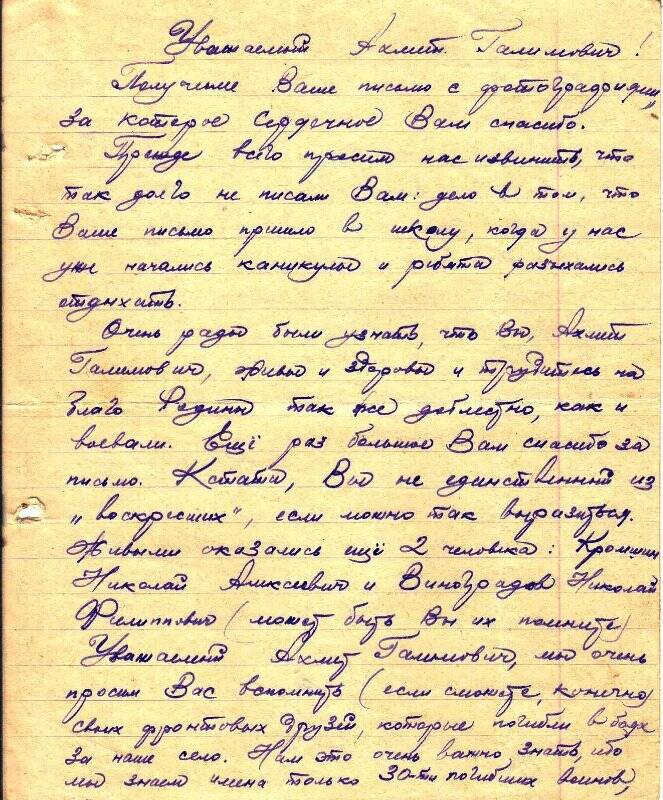 Уважаемый Ахмет Галимович!
Получили Ваше письмо с фотографиями,
за которое Сердечное Вам спасибо.
Прежде всего просим нас извинить, что
так долго не писали Вам: дело в том, что
Ваше письмо пришло в школу, когда у нас
уже начались каникулы и ребята разъехались
отдыхать.
Очень рады были узнать, что Вы, Ахмет
Галимович, живы и здоровы и трудитесь на
благо Родины так же доблестно, как и
воевали. Ещё раз большое Вам спасибо за
письмо. Кстати, Вы не единственный из
„воскресших“, если можно так выразиться.
Живыми оказались ещё 2 человека:
Николай Алексеевич и Виноградов Николай
Филиппович (может быть Вы их помните)
Уважаемый Ахмет Галимович, мы очень
просим Вас вспомнить (если сможете, конечно)
своих фронтовых друзей, которые погибли в боях
за наше село. Нам это очень важно знать, ибо
мы знаем имена только 30-ти погибших воинов,